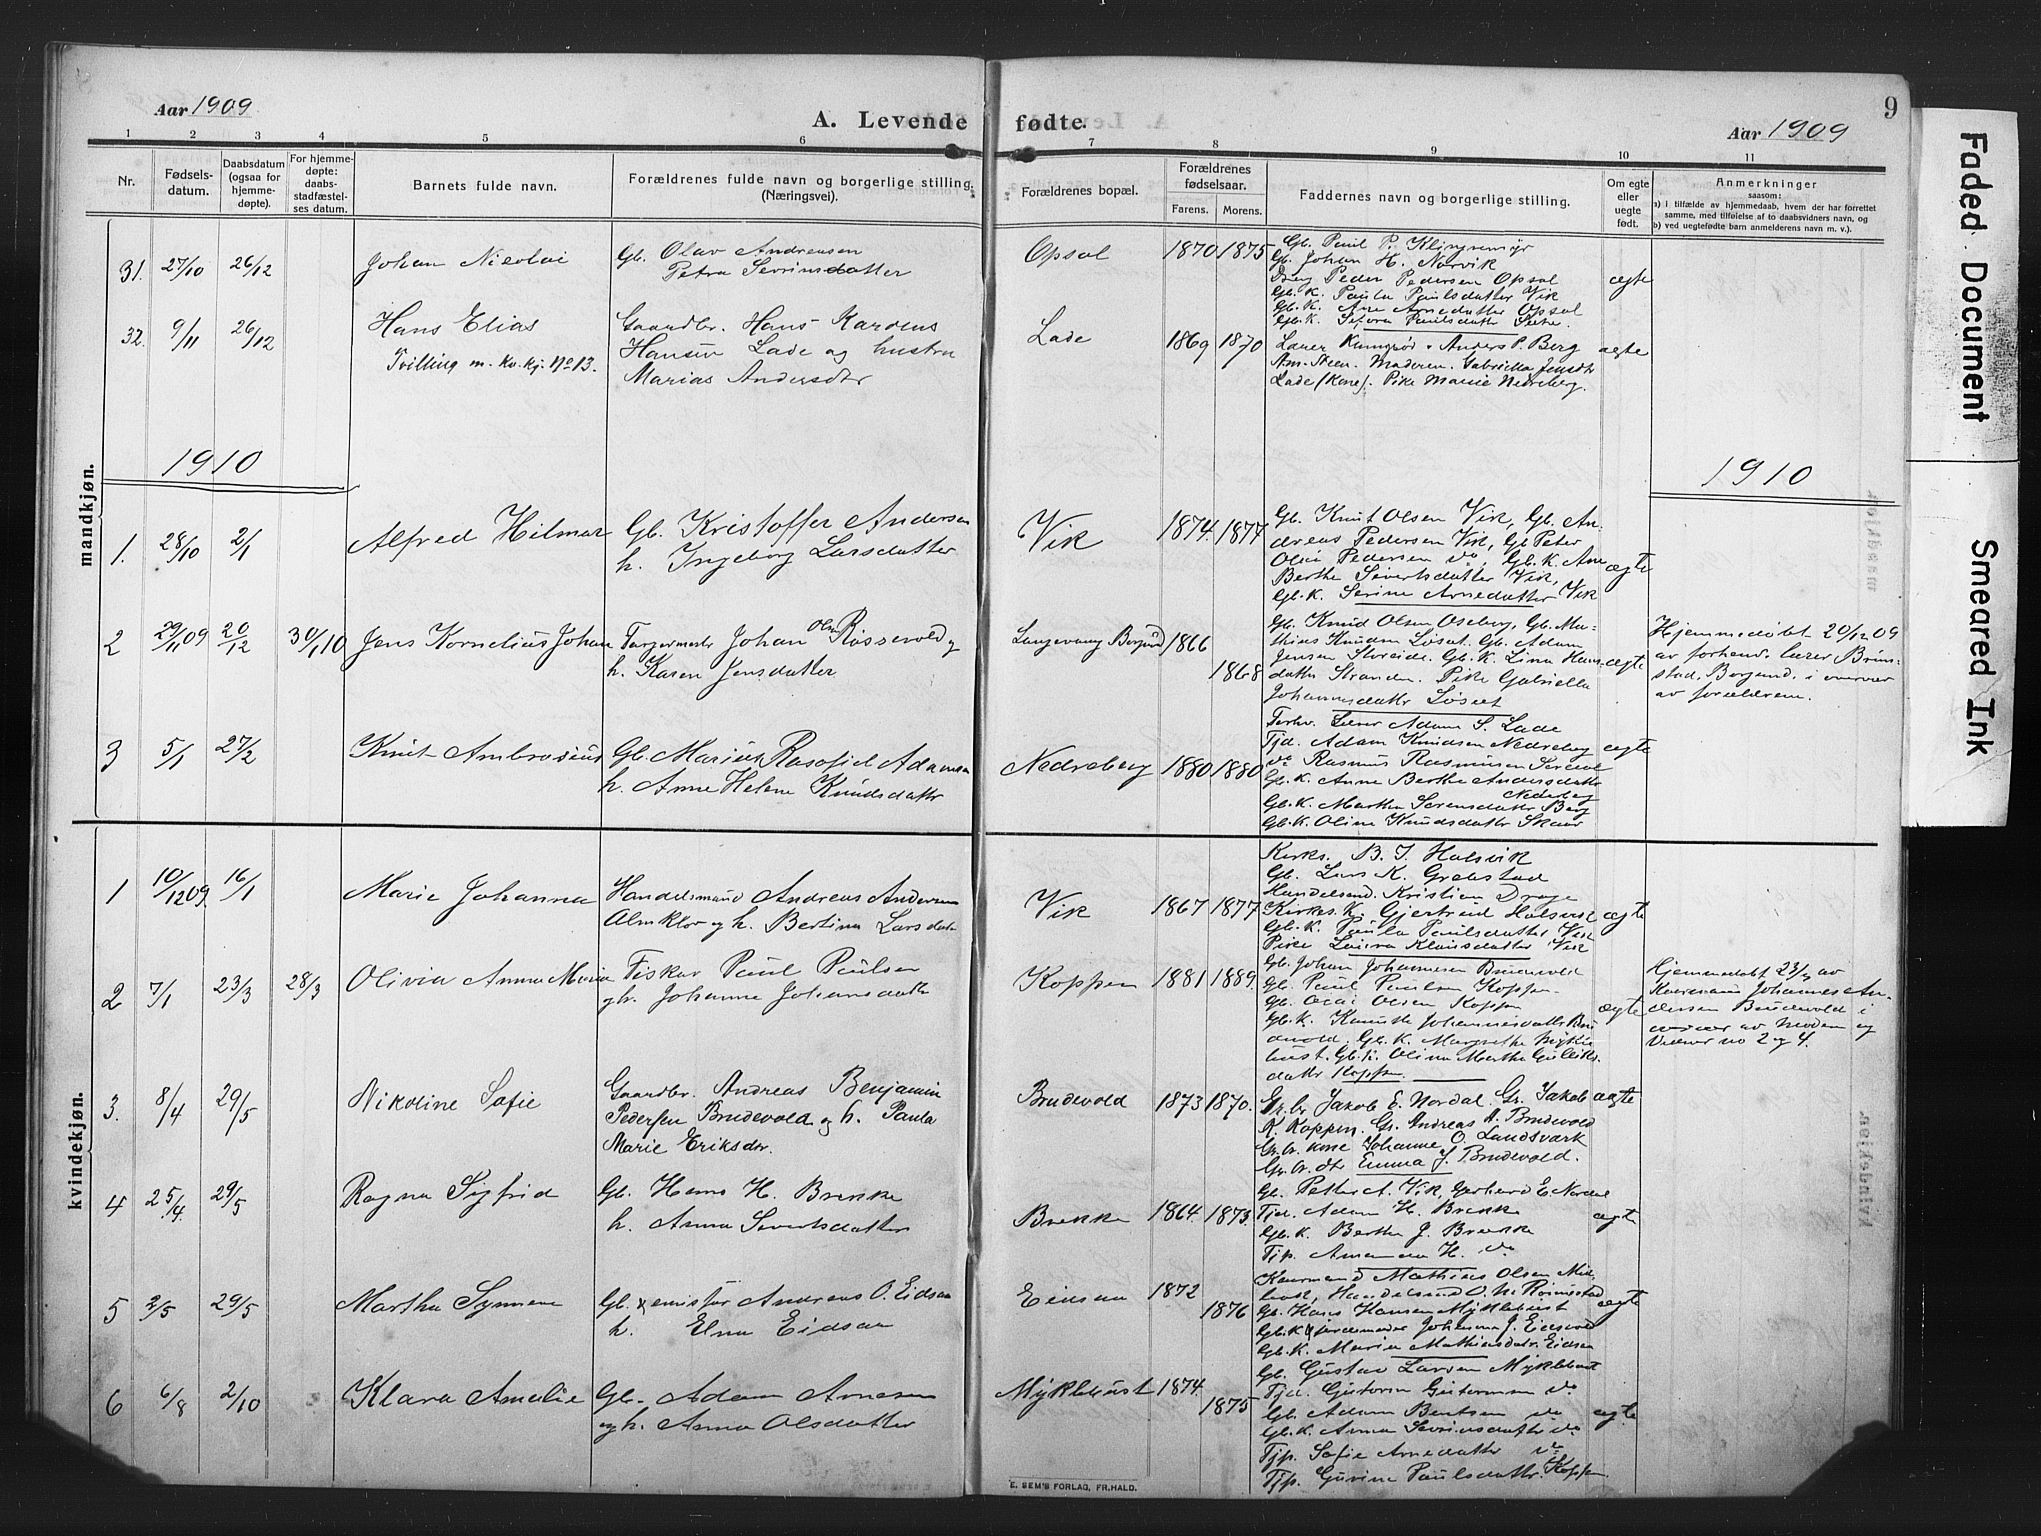 Aar 1909
A. Levende fødte.
9
Aar 1909
1 2 3 4 5 6 7 8 9 10 11
Nr.
Fødsels-
datum.
Daabsdatum
(ogsaa for
hjemme-
døpte).
For hjemme-
døpte:
daabs-
stadfæstel-
ses datum.
Barnets fulde navn.
Forældrenes fulde navn og borgerlige stilling.
(Næringsvei).
Forældrenes bopæl.
Forældrenes
fødselsaar.
Farens. Morens.
Faddernes navn og borgerlige stilling.
Om egte
eller
uegte
født.
Anmerkninger
saasom:
a) i tilfælde av hjemmedaab, hvem der har forrettet
samme, med tilføielse af to daabsvidners navn, og
b) ved uegtefødte barn anmelderens navn m. v.).
mandkjøn.
31. 27/10 26/12 Johan Nicolai
Gb. Olav Andreassen
Petra Sevrinsdatter
Opsal 1870 1875
Gb. Paul P. Klingremyr
Gb. Johan H. Norvik
Peder Pedersen Opsal
Gb. K. Paula Paulsdatter Vik
Gb. K. Ane Arnedatter Opsal
Gb. K. Paulsdatter
ægte
32. 9/11 26/12 Hans Elias
Tvilling m. kv. kj. No 13.
Gaardbr. Hans Karolus
Hansen Lade og hustru
Marias Andersdtr
Lade 1869 1870
Lærer Anders P. Berg
Gabriella Jensdtr
Lade (kone). Pike Marie Nedreberg.
ægte
1910
1910
1. 28/10 2/1 Alfred Hilmar
Gb. Kristoffer Andersen
h. Ingeborg Larsdatter
Vik 1874. 1877
Gb. Knut Olsen Vik, Gb. An-
dreas Pedersen Vik, Gb Peter
Pedersen do, Gb. K. Ane
Berthe Sivertsdatter Vik,
Gb. K. Serine Arnedatter Vik
ægte
2 29/11 09 20/12 30/1 10 Jens Kornelius Johan
Johan Olsen Røssevold og
h. Karen Jensdatter
Langevaag Borgund 1866
1868
Gb. Knud Olsen Oseberg, Gb. Ma-
thias Knudsen Løset. Gb. Adam
Jensen Gb. K. Lina Hans-
datter Stranden. Pike Gabriella
Johannesdatter Løset
ægte
Hjemmedøbt 20/12 09
av forhenv. lærer Brun-
stad, Borgund, i overvær
av forældrene.
3 5/1 27/2 Knut Ambrosius
Gb. Marius Adamsen
h. Anne Helene Knudsdatter
Nedreberg 1880 1880
Forhv. Lærer Adam S. Lade
Tjd. Adam Knudsen Nedreberg
do Rasmus Rasmussen
Gb. K. Anne Berthe Andersdatter
Nedreberg
Gb. K. Marthe Sørensdatter Berg
Gb. K. Oline Knudsdatter Skaar
ægte
kvindekjøn.
1 10/12 09. 16/1 Marie Johanna
Handelsmand Andreas Andersen
Almklov og h. Bertina Larsdatr
Vik 1867 1877
Kirks. B. J. Holsvik
Gb. Lars K. Grebstad
Handelsmd. Kristian Drage
Kirkes. K. Gjertrud Holsvik
Gb. K. Paula Paulsdatter Vik
Pike Laura Klausdatter Vik
ægte
2 7/1 23/3 28/3 Olivia Anna Maria
Fisker Paul Paulsen
og h. Johanne Johansdatter
Koppen 1881 1889
Gb. Johan Johannesen Brudevold
Gb. Paul Paulsen Koppen
Gb. Olsen Koppen
Gb. K. Johannesdatter Bru-
devold. Gb. K. Margrethe Mykle-
bust. Gb. K. Olina Marthe
datter Koppen.
ægte
Hjemmedøbt 23/3 av
Johannes An-
dersen Brudevold i
overvær av moderen og
vidner no 2 og 4.
3. 8/4 29/5 Nikoline Sofie
Gaardbr. Andreas Benjamin
Pedersen Brudevold og h. Paula
Marie Eriksdtr.
Brudevold 1873 1870.
Gr. br Jakob E. Nordal. Gr. Jakob
K. Koppen. Gr. Andreas A. Brudevold
Gr. br. kone Johanne O. Landsværk
Gr. br. dtr Emma J. Brudevold.
ægte
4 25/4. 29/5 Ragna Sigfrid
Gb. Hans H. Brekke
h. Anna Severtsdatter
Brekke 1864. 1873.
Gb. Petter A. Vik, Gerhard E. Nordal
Tjd. Adam H. Brekke
Gb. K. Berthe J. Brekke
Tjp. H. do
ægte
5 2/5 29/5 Martha Synnøve
Gb. Andreas O. Eidsaa
h. Elna Eidsaa
Eidsaa 1872
1876
Kaarmand Mathias Olsen Mykle-
bust, Handelsmd O. M. Runnestad
Gb. Hans Hansen Myklebust
Gb. K jordemoder Johanna J.
Gb. K. Maria Mathiasdatr. Eidsaa
ægte
6 6/8 2/10 Klara Amalie
Gb. Adam Arnesen
og h. Anna Olsdatter
Myklebust 1874.
1875
Gb. Gustav Larsen Myklebust
Tjd. Guttorm Guttormsen do
Gb. Adam Bentsen do
Gb. K. Anna Sevrinsdatter do
Tjp. Sofie Arnedatter do
Tjp. Gurine Paulsdatter Koppen.
ægte.
E. SEM'S FORLAG, FR.HALD.
Faded Document
Smeared Ink